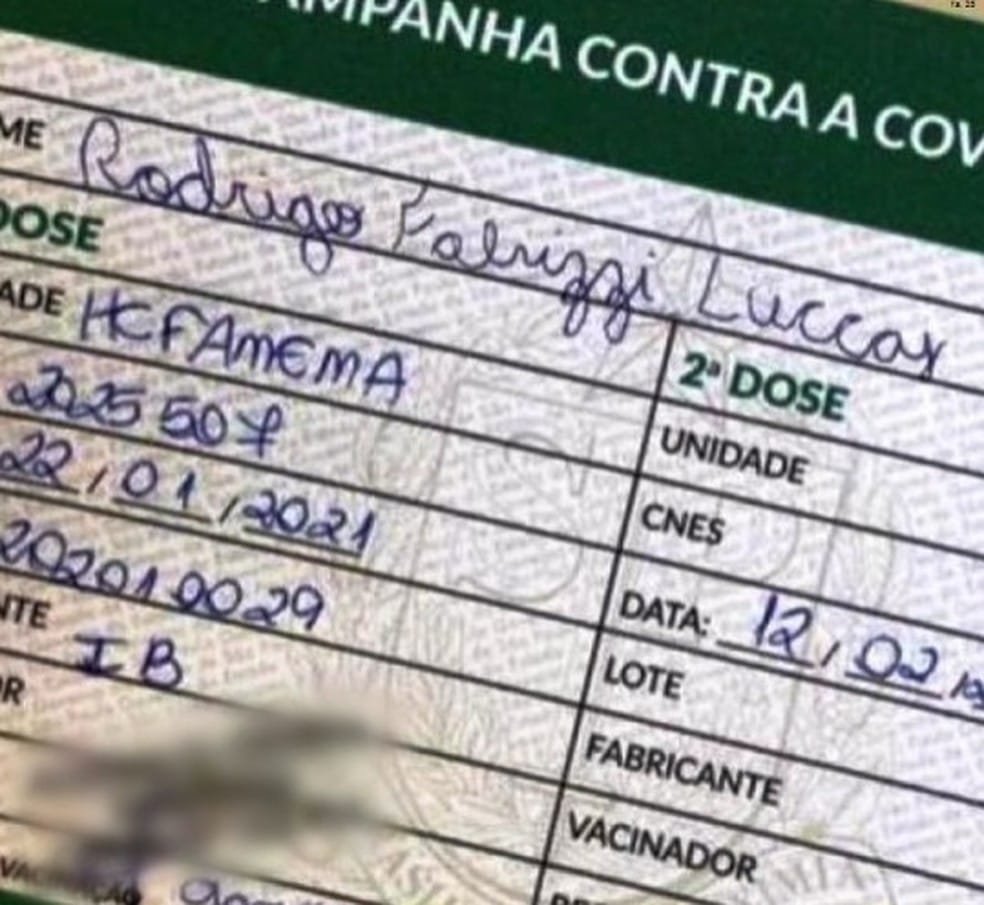 CAMPANHA CONTRA A COV
ME Rodrigo Fabrizzi Luccas
DOSE
ADE HCFAMEMA
2025507
22/01/2021
202010029
NTE IB
OR
2ª DOSE
UNIDADE
CNES
DATA: 12/02/
LOTE
FABRICANTE
VACINADOR